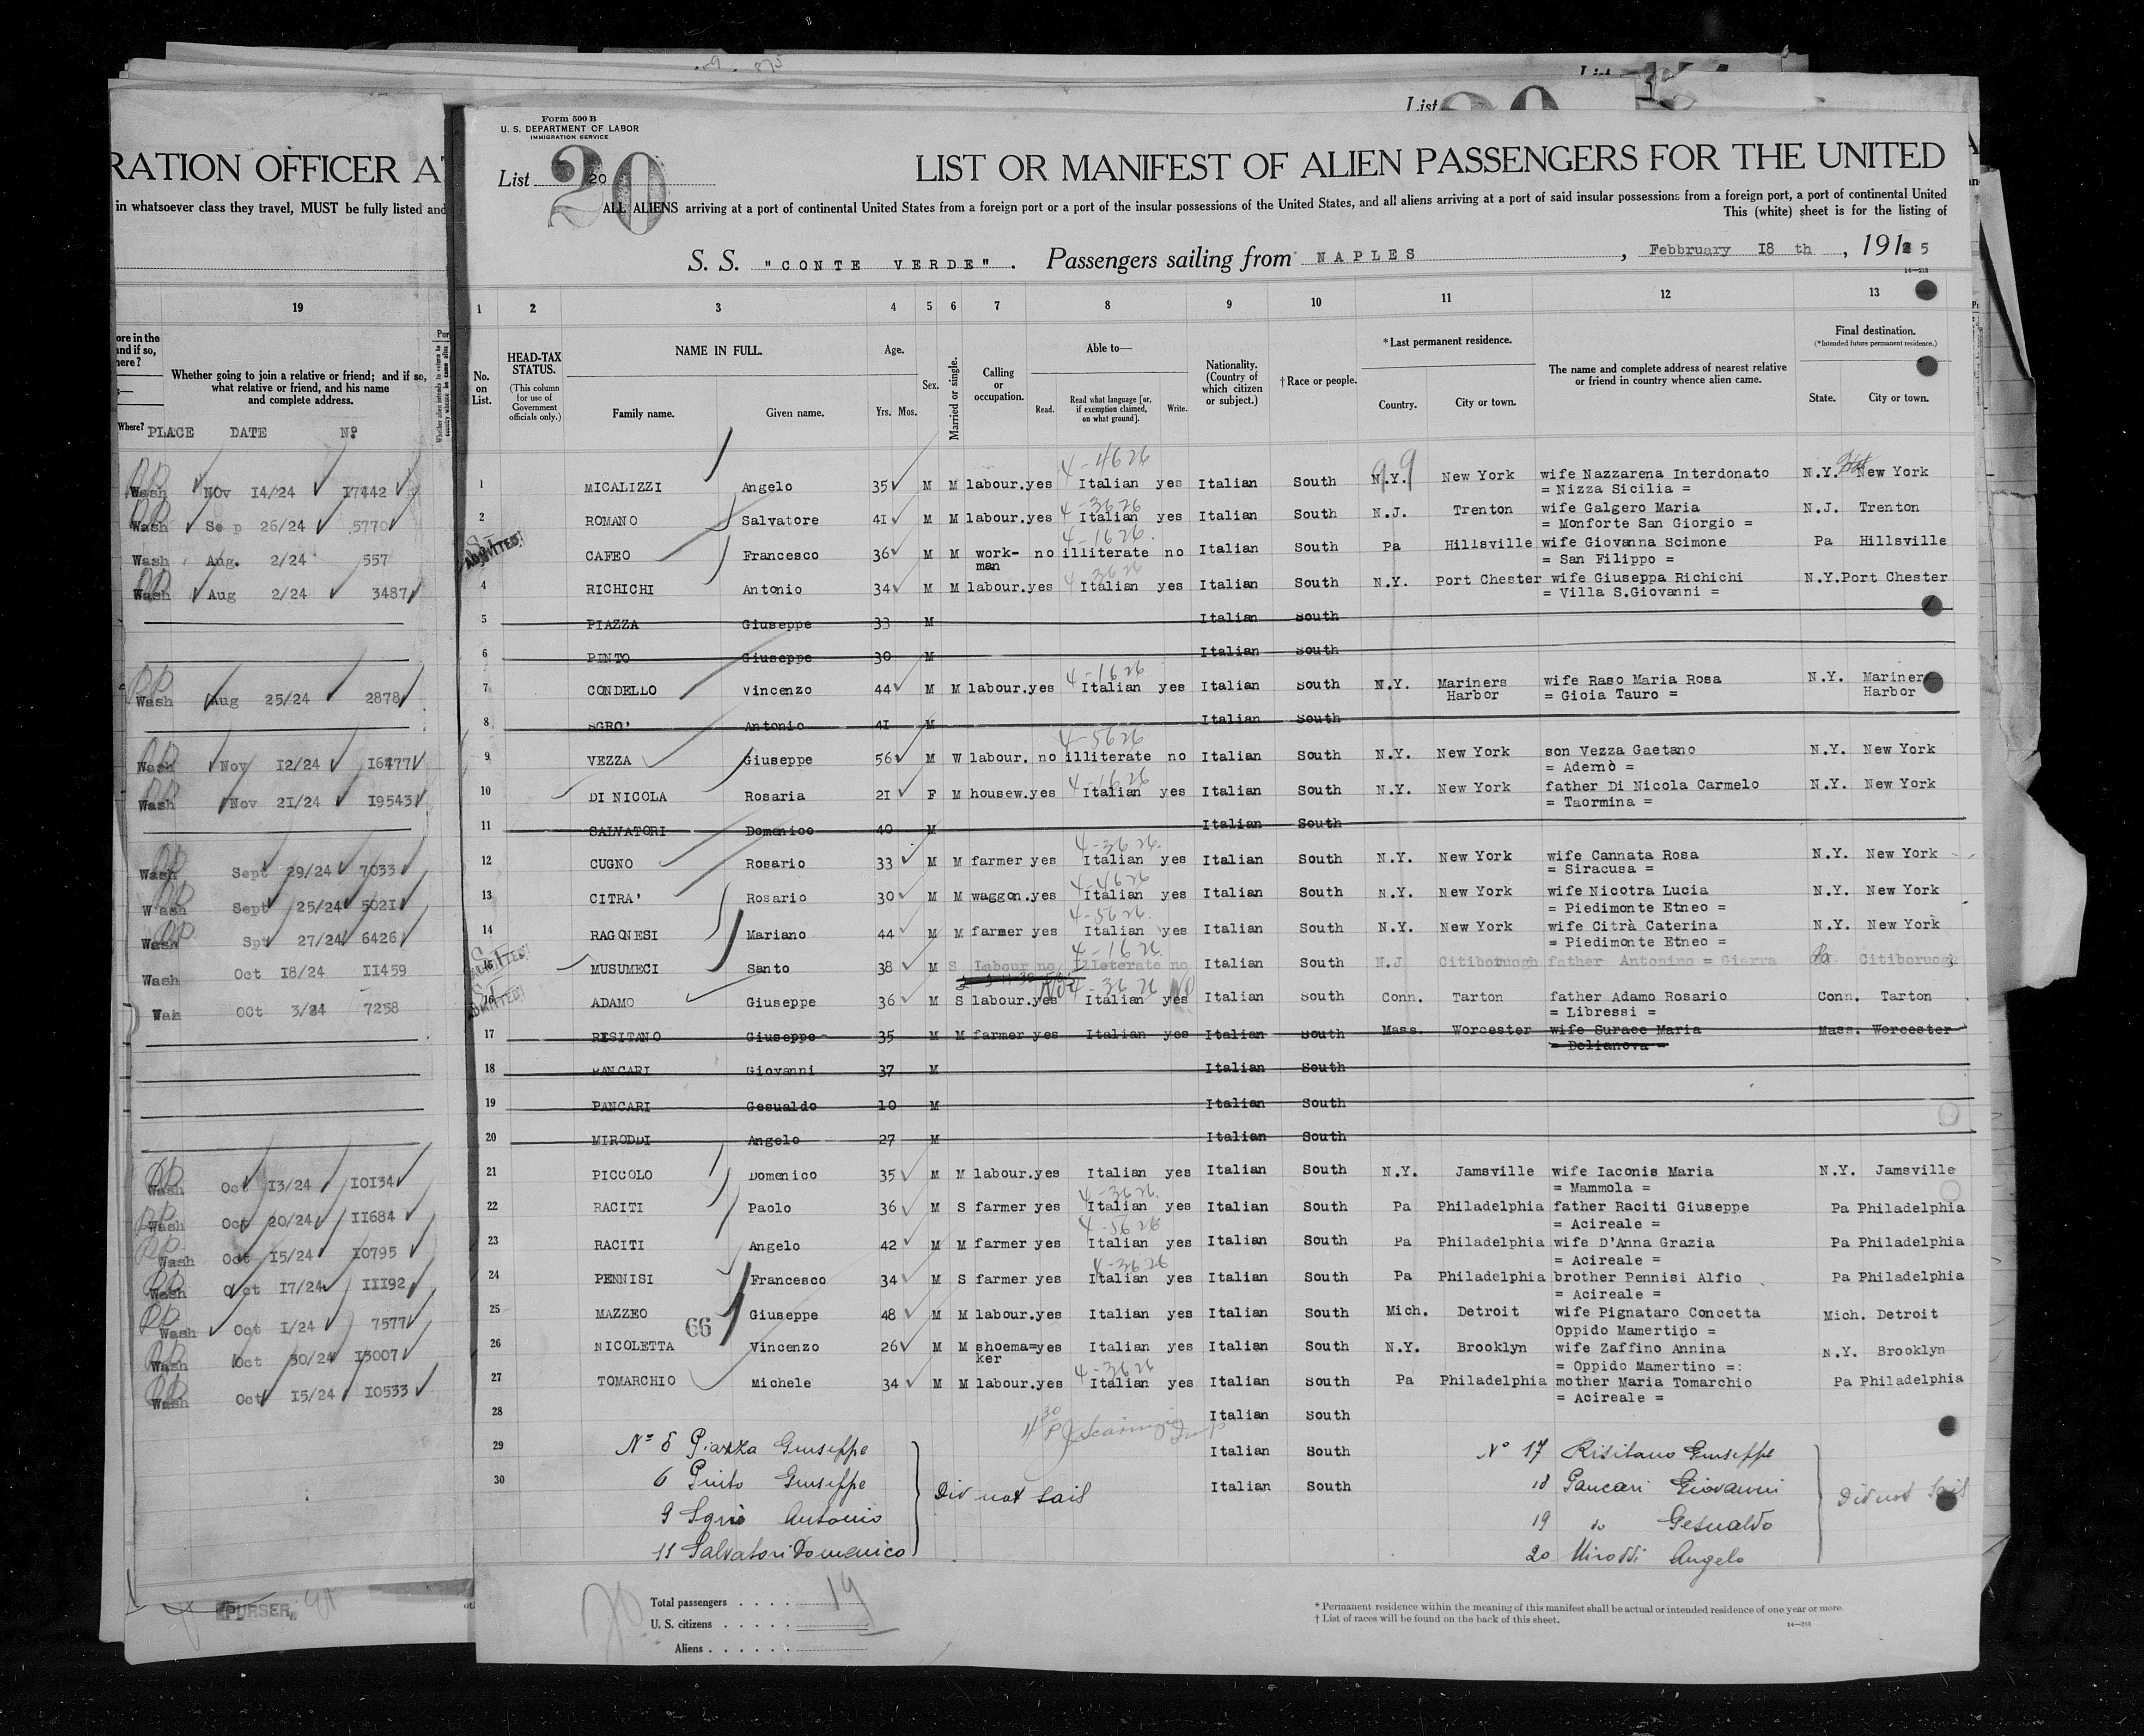 RATION OFFICER AT
in whatsoever class they travel, MUST be fully listed and
19
ore in the
and if so,
here?
Whether going to join a relative or friend; and if so,
what relative or friend, and his name
and complete address.
Where? PLACE DATE Nº
Wash Nov 14/24 17442
Wash Sep 26/24 5770
Wash Aug. 2/24 557
Wash Aug 2/24 3487
Wash Aug 25/24 2878
Wash Nov 12/24 16477
Wash Nov 21/24 19543
Wash Sept 29/24 7033
Wash Sept 25/24 5021
Wash Spt 27/24 6426
Wash Oct 18/24 11459
Wah Oct 3/24 7258
Wash Oct 13/24 10134
Wash Oct 20/24 11684
Wash Oct 15/24 10795
Wash Oct 17/24 11192
Wash Oct 1/24 7577
Wash Oct 30/24 13007
Wash Oct 15/24 10533
PURSER,
List
Form 500 B
U. S. DEPARTMENT OF LABOR
IMMIGRATION SERVICE
List 20
20
LIST OR MANIFEST OF ALIEN PASSENGERS FOR THE UNITED
ALL ALIENS arriving at a port of continental United States from a foreign port or a port of the insular possessions of the United States, and all aliens arriving at a port of said insular possessions from a foreign port, a port of continental United
This (white) sheet is for the listing of
S. S. "CONTE VERDE". Passengers sailing from NAPLES, Febbruary 18 th, 1925
14—213
1 2 3 4 5 6 7 8 9 10 11 12 13
No. on List.
HEAD-TAX STATUS.
(This column for use of Government officials only.)
NAME IN FULL.
Family name. Given name.
Age.
Yrs. Mos.
Sex.
Married or single.
Calling or occupation.
Able to—
Read. Read what language [or, if exemption claimed, on what ground]. Write.
Nationality. (Country of which citizen or subject.)
†Race or people.
*Last permanent residence.
Country. City or town.
The name and complete address of nearest relative or friend in country whence alien came.
Final destination.
(*Intended future permanent residence.)
State. City or town.
4-4626 99
1 MICALIZZI Angelo 35 M M labour. yes Italian yes Italian South N.Y. New York wife Nazzarena Interdonato N.Y. New York
= Nizza Sicilia =
4-3626
2 ROMANO Salvatore 41 M M labour. yes Italian yes Italian South N.J. Trenton wife Galgero Maria N.J. Trenton
= Monforte San Giorgio =
4-1626.
ADMITTED CAFEO Francesco 36 M M work- no illiterate no Italian South Pa Hillsville wife Giovanna Scimone Pa Hillsville
man = San Filippo =
4-3626
4 RICHICHI Antonio 34 M M labour. yes Italian yes Italian South N.Y. Port Chester wife Giuseppa Richichi N.Y. Port Chester
= Villa S.Giovanni =
5 PIAZZA Giuseppe 33 M Italian South
6 PINTO Giuseppe 30 M Italian South
4-1626
7 CONDELLO Vincenzo 44 M M labour. yes Italian yes Italian South N.Y. Mariners wife Raso Maria Rosa N.Y. Mariner
Harbor = Gioia Tauro = Harbor
8 SGRO' Antonio 41 M Italian South
4-5626
9 VEZZA Giuseppe 56 M W labour. no illiterate no Italian South N.Y. New York son Vezza Gaetano N.Y. New York
= Adernò =
4-1626
10 DI NICOLA Rosaria 21 F M housew. yes Italian yes Italian South N.Y. New York father Di Nicola Carmelo N.Y. New York
= Taormina =
11 SALVATORI Domenico 40 M Italian South
4-3626.
12 CUGNO Rosario 33 M M farmer yes Italian yes Italian South N.Y. New York wife Cannata Rosa N.Y. New York
= Siracusa =
4-4626
13 CITRA' Rosario 30 M M waggon. yes Italian yes Italian South N.Y. New York wife Nicotra Lucia N.Y. New York
= Piedimonte Etneo =
4-5626.
14 RAGONESI Mariano 44 M M farmer yes Italian yes Italian South N.Y. New York wife Citrà Caterina N.Y. New York
= Piedimonte Etneo =
4-1626
15 MUSUMECI Santo 38 M S Labour no Illeterate no Italian South N.J. Citiboruogh father Antonino = Giarra Pa. Citiboruogh
4-3626 No
16 ADAMO Giuseppe 36 M S labour. yes Italian yes Italian South Conn. Tarton father Adamo Rosario Conn. Tarton
= Libressi =
17 RISITANO Giuseppe 35 M M farmer yes Italian yes Italian South Mass. Worcester wife Surace Maria Mass. Worcester
= Delianova =
18 PANCARI Giovanni 37 M Italian South
19 PANCARI Gesualdo 10 M Italian South
20 MIRODDI Angelo 27 M Italian South
21 PICCOLO Domenico 35 M M labour. yes Italian yes Italian South N.Y. Jamsville wife Iaconis Maria N.Y. Jamsville
= Mammola =
4-3626.
22 RACITI Paolo 36 M S farmer yes Italian yes Italian South Pa Philadelphia father Raciti Giuseppe Pa Philadelphia
= Acireale =
4-5626
23 RACITI Angelo 42 M M farmer yes Italian yes Italian South Pa Philadelphia wife D'Anna Grazia Pa Philadelphia
= Acireale =
4-3626
24 PENNISI Francesco 34 M S farmer yes Italian yes Italian South Pa Philadelphia brother Pennisi Alfio Pa Philadelphia
= Acireale =
25 MAZZEO Giuseppe 48 M M labour. yes Italian yes Italian South Mich. Detroit wife Pignataro Concetta Mich. Detroit
66 Oppido Mamertino =
26 NICOLETTA Vincenzo 26 M M shoema= yes Italian yes Italian South N.Y. Brooklyn wife Zaffino Annina N.Y. Brooklyn
ker = Oppido Mamertino =:
4-3626
27 TOMARCHIO Michele 34 M M labour. yes Italian yes Italian South Pa Philadelphia mother Maria Tomarchio Pa Philadelphia
= Acireale =
28 Italian South
29 Nº 5 Piazza Giuseppe Italian South Nº 17 Risitano Giuseppe
30 6 Pinto Giuseppe Did not sail Italian South 18 Pancari Giovanni Did not sail
9 Sgrò Antonio 19 do Gesualdo
11 Salvatori Domenico 20 Miroddi Angelo
20
Total passengers . . . . 19
U. S. citizens . . . . .
Aliens . . . . . .
* Permanent residence within the meaning of this manifest shall be actual or intended residence of one year or more.
† List of races will be found on the back of this sheet.
14—213